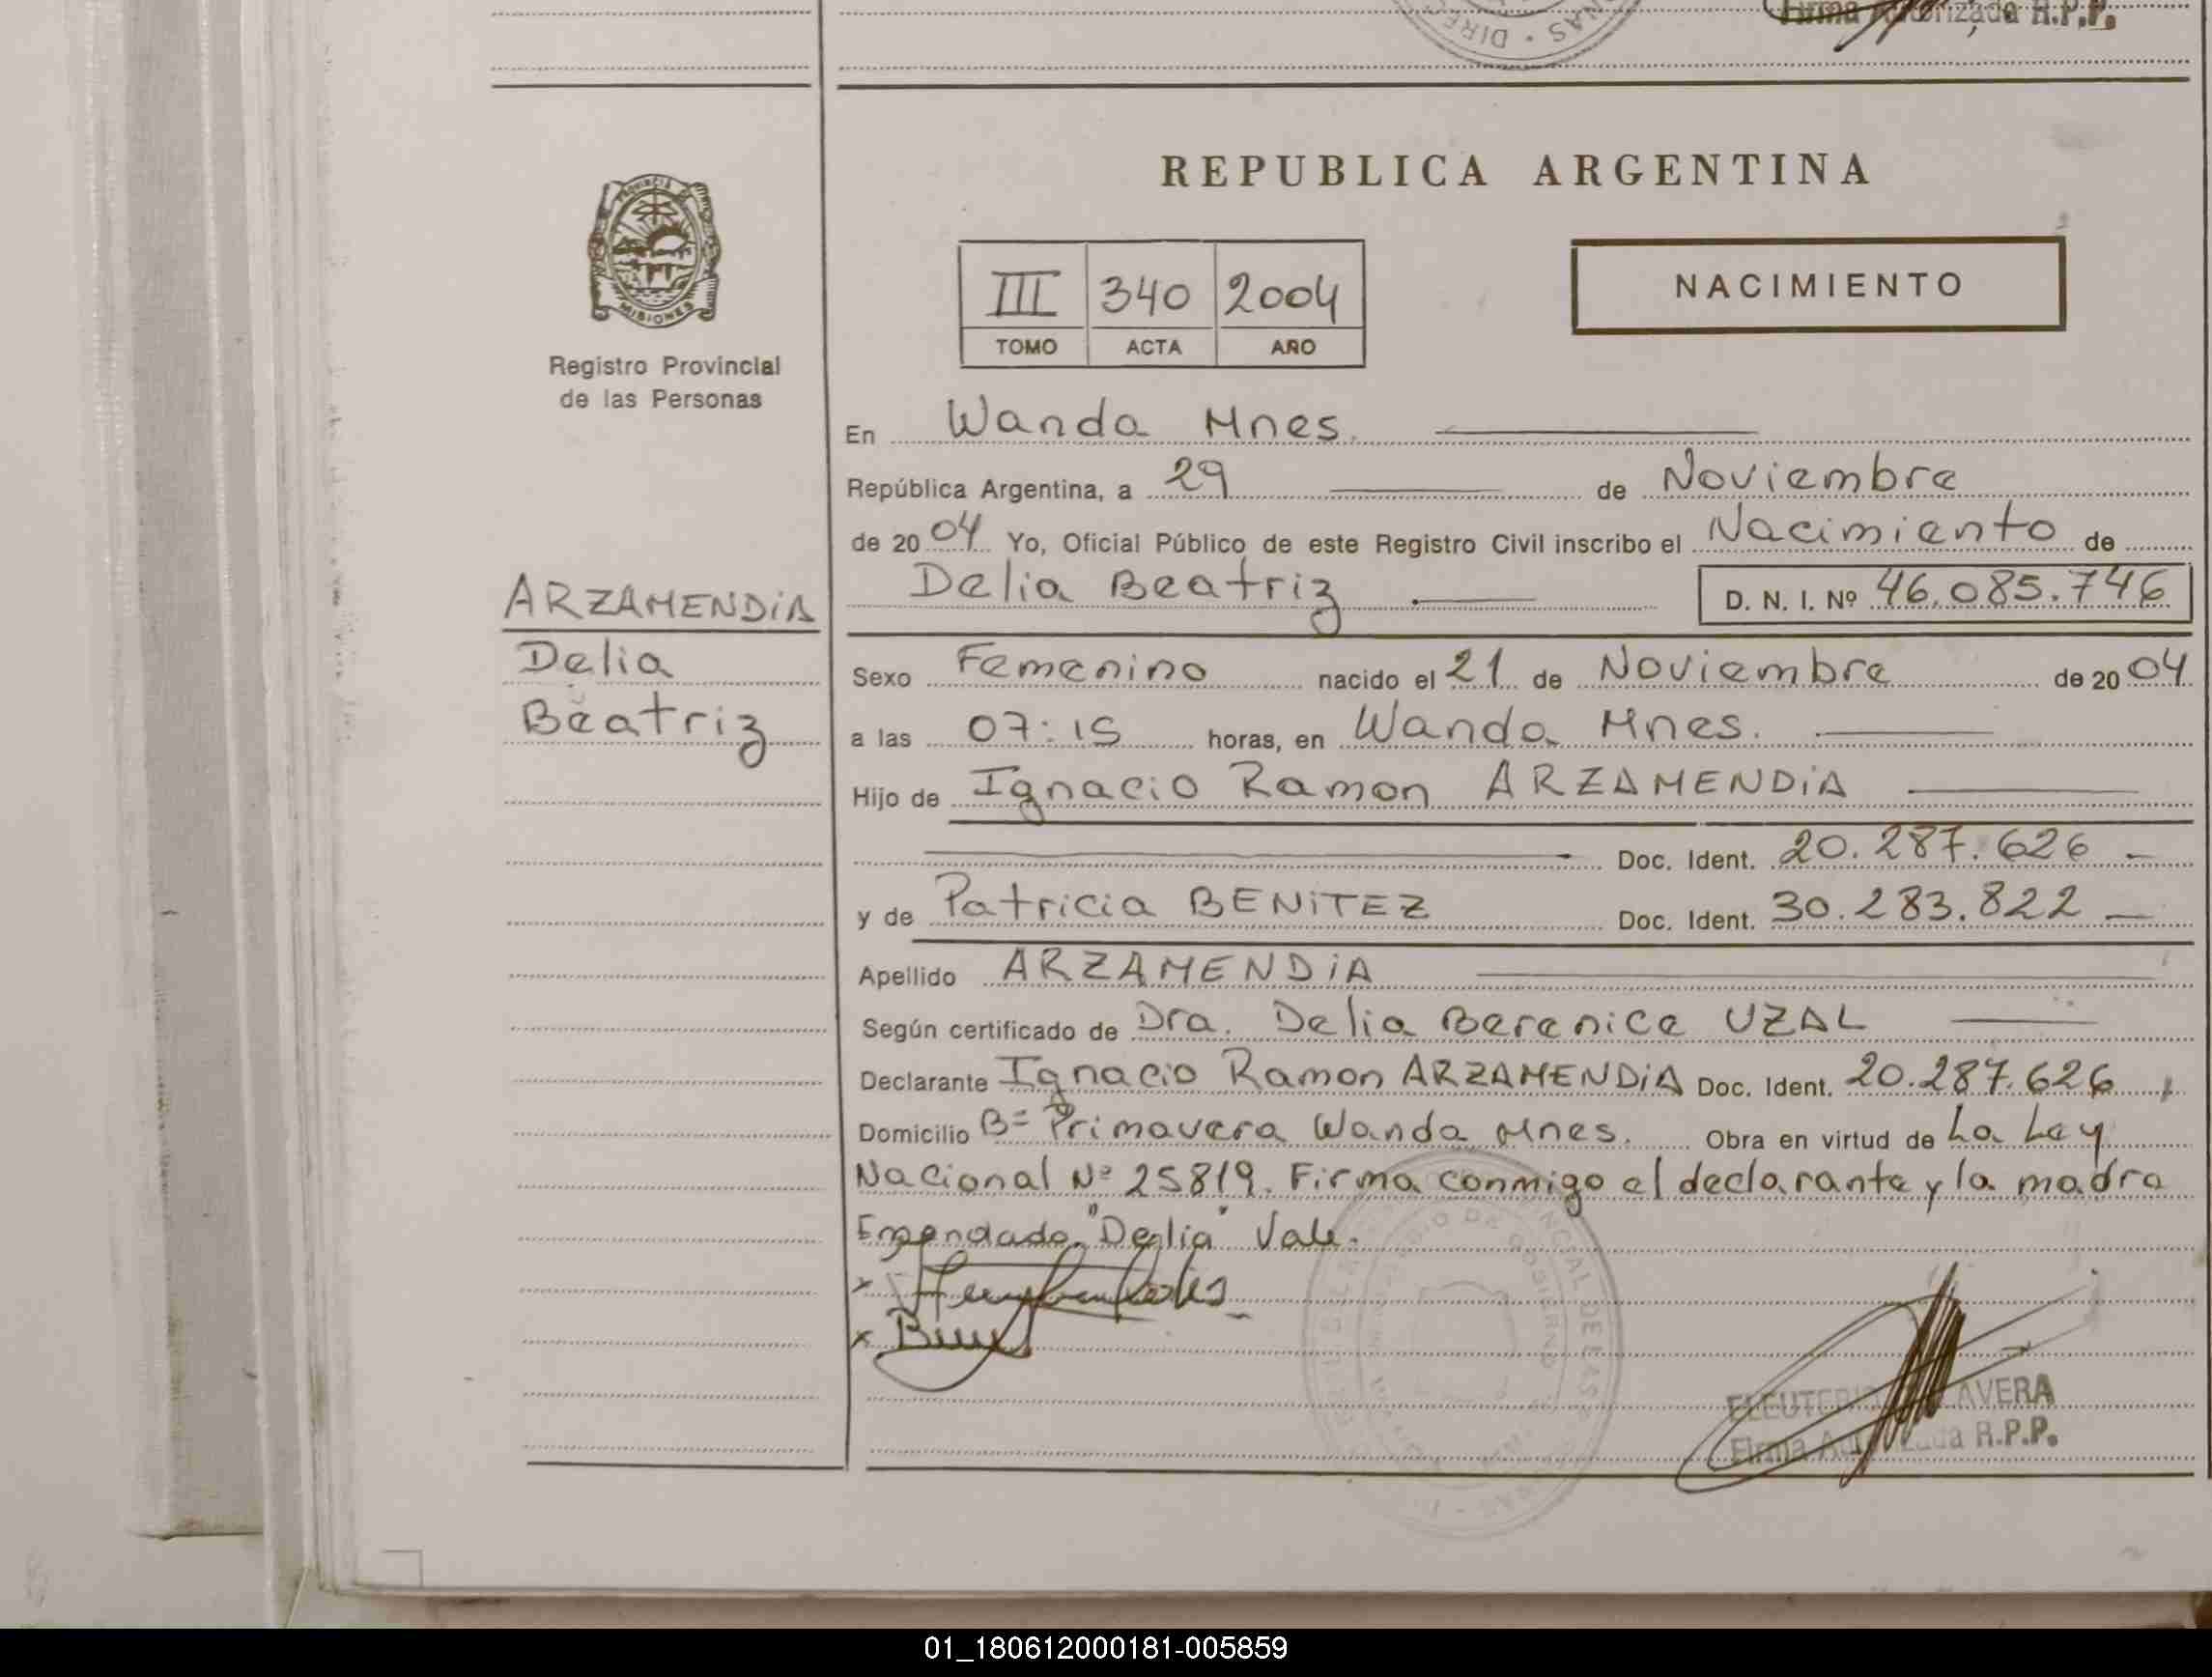 Firma Autorizada R.P.P.
REPUBLICA ARGENTINA
PROVINCIA DE
MISIONES
Registro Provincial
de las Personas
III 340 2004
TOMO ACTA AÑO
NACIMIENTO
En Wanda Mnes.
República Argentina, a 29 de Noviembre
de 2004 Yo, Oficial Público de este Registro Civil inscribo el Nacimiento de
Delia Beatriz D. N. I. Nº 46.085.746
ARZAMENDiA
Delia
Beatriz
Sexo Femenino nacido el 21 de Noviembre de 2004
a las 07:15 horas, en Wanda Mnes.
Hijo de Ignacio Ramon ARZAMENDiA
Doc. Ident. 20.287.626 -
y de Patricia BENiTEZ Doc. Ident. 30.283.822 -
Apellido ARZAMENDiA
Según certificado de Dra. Delia Berenice UZAL
Declarante Ignacio Ramon ARZAMENDiA Doc. Ident. 20.287.626
Domicilio Bº Primavera Wanda Mnes. Obra en virtud de La Ley
Nacional Nº 25819. Firma conmigo el declarante y la madre
Enmendado. "Delia" Vale.
Firma R.P.P.
01_180612000181-005859